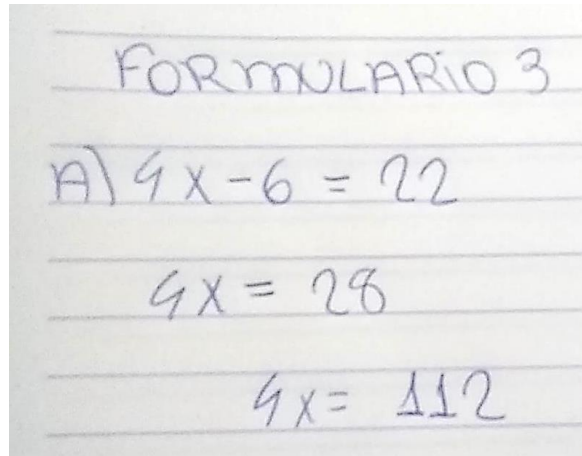 FORMULARIO 3
A) 4x - 6 = 22
4x = 28
4x = 112